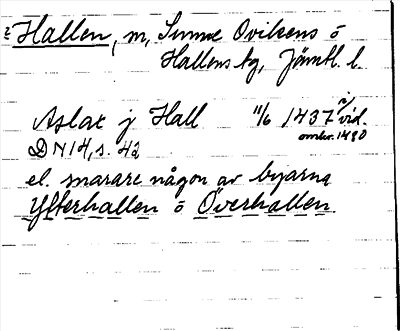 Hallen, m, Sunne Ovikens ö
Hallens sg, Jämtl. l.
Aslak j Hall 11/6 1437 2/ vid.
omkr. 1480
DN 14, s. 42
el. snarare någon av byarna
Ytterhallen ö Överhallen.